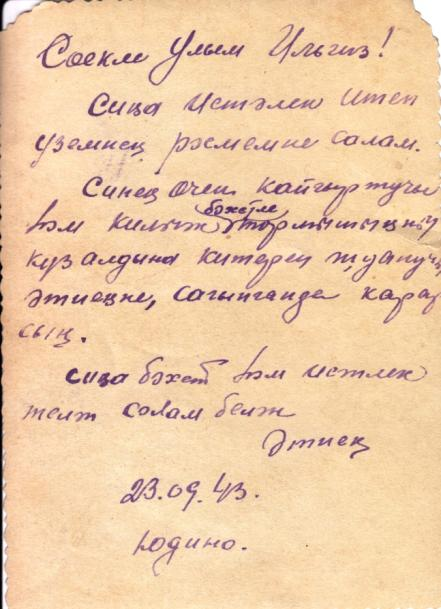 Сөекле Улым Ильгиз!
Сиңа истәлек итеп
үземнең рәсемемне салам.
Синең өчен кайгыртучы
һәм киләчәк бәхетле тормышыңны
күз алдына китереп җуанучы
әтиеңне, сагынганда карар
сың.
сиңа бәхет һәм исәнлек
теләп сәлам белән
Әтиең
23.09.43.
Юдино.